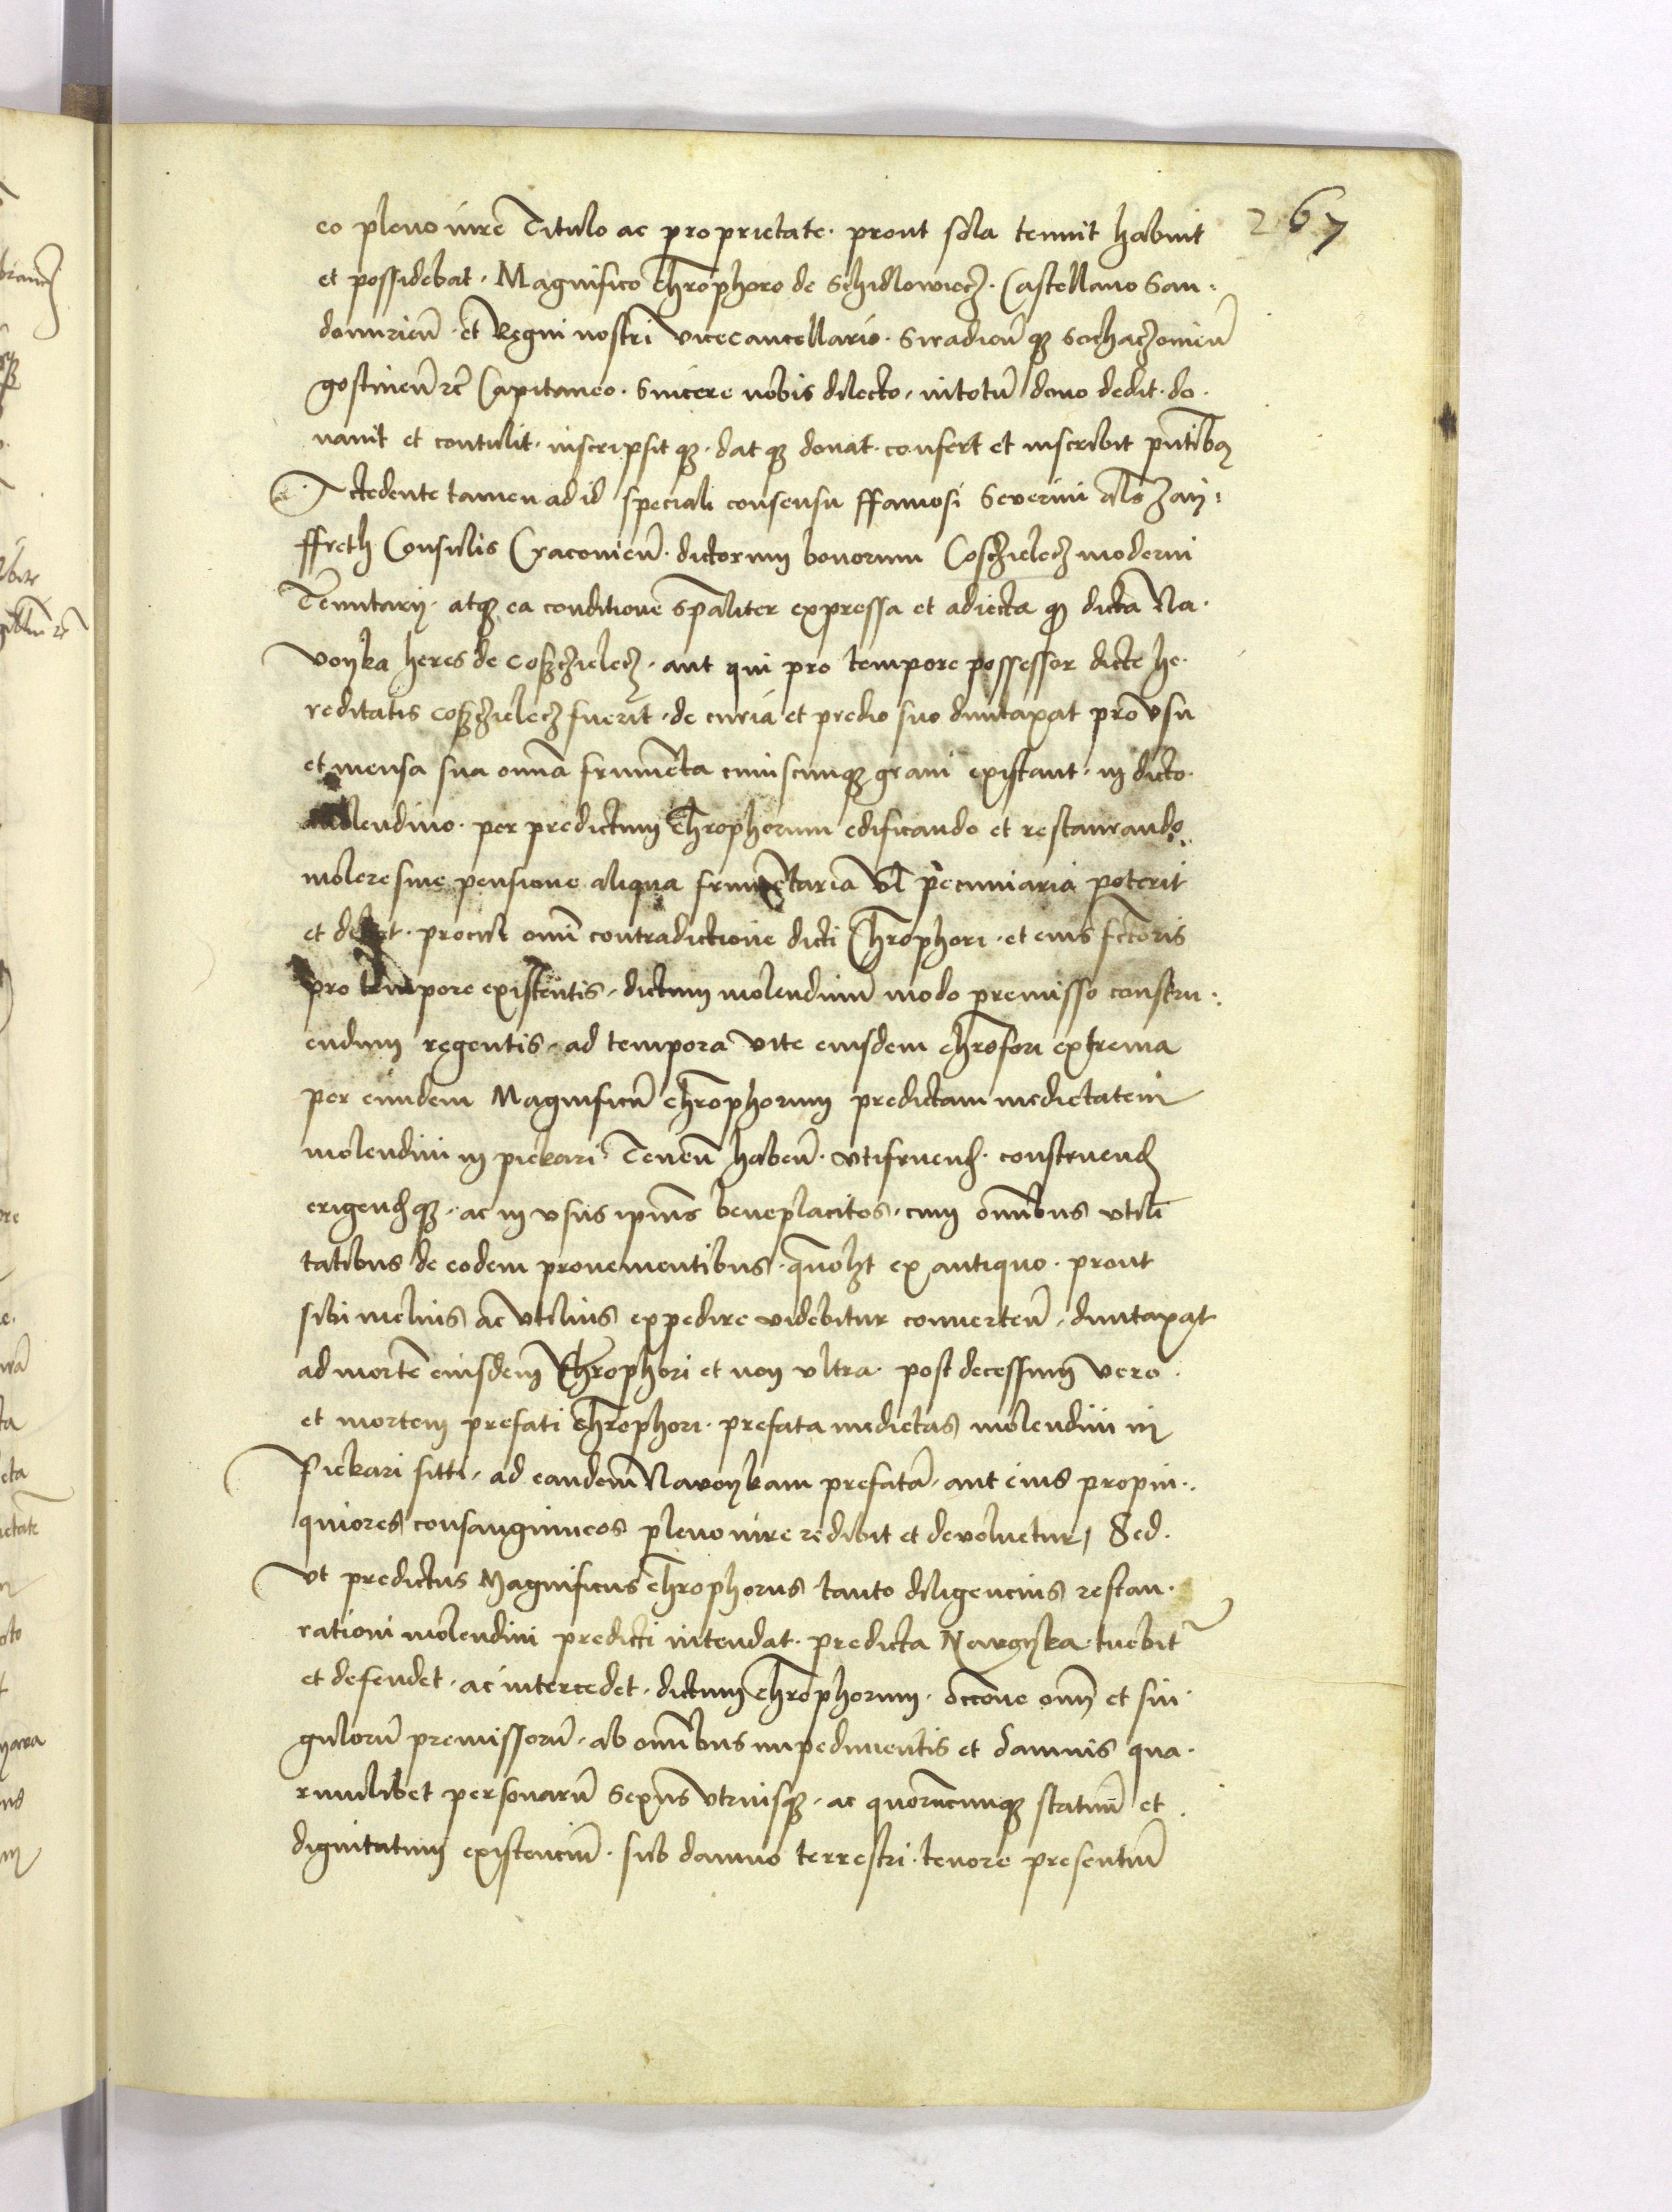 267
eo pleno iure Titulo ac proprietate. prout sola tenuit habuit
et possidebat. Magnifico Chrophoro de Schidlowiecz. Castellano San.
domirieñ. et Regni nostri Vicecancellario. Siradieñ qz Sochaczouieñ
gostinieñ zc Capitaneo. Sincere nobis dilecto, intotū dono dedit. do.
nauit et contulit. inscripsit qz. dat qz donat. confert et inscribit pñtibq
Accedente tamen ad id speciali consensu ffamosi Seuerini als
ffreth Consulis Cracouieñ. dictorum bonorum Cosczielecz moderni
Tenutarij. atqz ea conditione spāliter expressa et adiecta qz dicta Na.
voyka heres de Cosczielecz. aut qui pro tempore possessor dicte he.
reditatis Cosczielecz fuerit. de curia et predio suo duntaxat pro vsu
et mensa sua om̄ia frumēta cuiuscunqz grani existant. in dicto.
molendino. per predictum Chrophorum edificando et restaurando
molere sine pensione aliqua frumētaria vl pecuniaria poterit
et debet. procul om̄i contradictione dicti Chrophori. et eius fctoris
pro tempore existētis, dictum molendinū modo premisso constru.
endum regentis, ad tempora vite eiusdem chrofori extrema
per eundem Magnificū chrophorum predictam medietatem
molendini in piekari Teneñ habeñ. vtifruend. construend
erigendqz. ac in vsus ipius beneplacitos, cum om̄ibus vtili
tatibus de eodem prouenientibus. quolzt ex antiquo. prout
sibi melius ac vtilius expedire videbitur conuerteñ, duntaxat
ad mortē eiusdem Chrophori et non vltra. post decessum vero.
et mortem prefati chrophori. prefata medietas molendini in
Piekari sitti, ad eandem Navoykam prefatā, aut eius propin.
quiores consanguineos pleno iure redibit et deuoluetur, Sed.
vt predictus Magnificus chrophorus tanto diligencius restau.
rationi molendini predicti intendat. predicta Navoyka tuebit
et defendet. ac intercedet. dictum chrophorum. occone om̄ et sin
gulorū premissorū. ab om̄ibus impedimentis et damnis qua.
rumlibet personarū sexus vtriusqz. ac quorūcunqz statuū et
dignitatum existenciū. sub damno terrestri. tenore presentiū